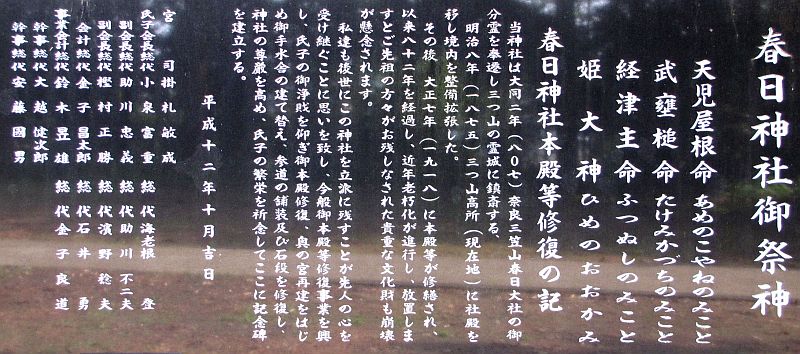 春日神社御祭神
天児屋根命 あめのこやねのみこと
武甕槌命 たけみかづちのみこと
経津主命 ふつぬしのみこと
姫大神 ひめのおおかみ
春日神社本殿等修復の記
当神社は大同二年（八〇七）奈良三笠山春日大社の御
分霊を奉遷し三つ山の霊域に鎮斎する、
明治八年（一八七五）三つ山高所（現在地）に社殿を
移し境内を整備拡張した。
その後、大正七年（一九一八）に本殿等が修繕され、
以来八十二年を経過し、近年老朽化が進行し、放置しま
すとご先祖の方々がお残しなされた貴重な文化財も崩壊
が懸念されます。
私達も後世にこの神社を立派に残すことが先人の心を
受け継ぐことに思いを致し、今般御本殿等修復事業を興
し、氏子の御浄財を仰ぎ御本殿修復、奥の宮再建をはじ
め御手水舎の建て替え、参道の舗装及び石段を修復し、
神社の尊厳を高め、氏子の繁栄を祈念してここに記念碑
を建立する。
平成十二年十月吉日
宮司 掛札敏成
氏子会長総代 小泉富重 総代 海老根登
副会長総代 助川忠義 総代 助川不二夫
副会長総代 樫村正勝 総代 濱野稔夫
会計総代 金子昌太郎 総代 石井勇
事業会計総代 鈴木昱雄 総代 金子良道
幹事総代 大越健次郎
幹事総代 安藤國男